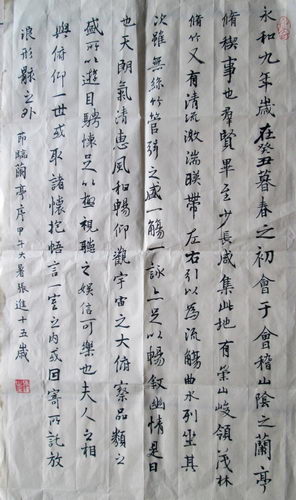 永和九年歲在癸丑暮春之初會于會稽山陰之蘭亭
脩稧事也羣賢畢至少長咸集此地有崇山峻領茂林
脩竹又有清流激湍暎帶左右引以為流觴曲水列坐其
次雖無絲竹管弦之盛一觴一詠亦足以暢叙幽情是日
也天朗氣清惠風和暢仰觀宇宙之大俯察品類之
盛所以遊目騁懷足以極視聽之娛信可樂也夫人之相
與俯仰一世或取諸懷抱悟言一室之內或因寄所託放
浪形骸之外 節臨蘭亭序甲午大暑張進十五歲